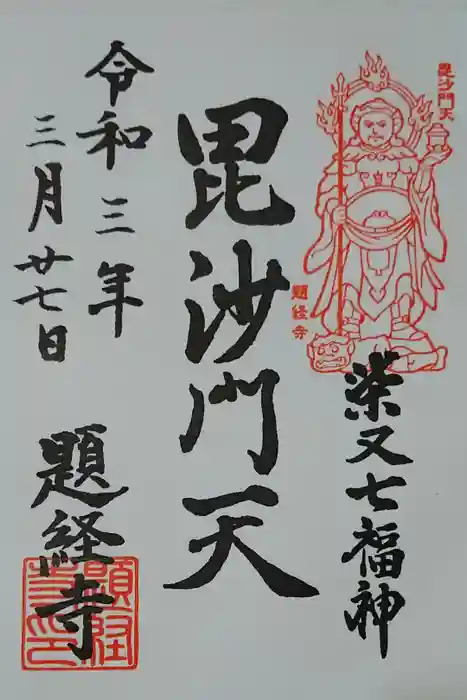 毘沙門天
題経寺
柴又七福神
毘沙門天
令和三年
三月廿七日
題経寺